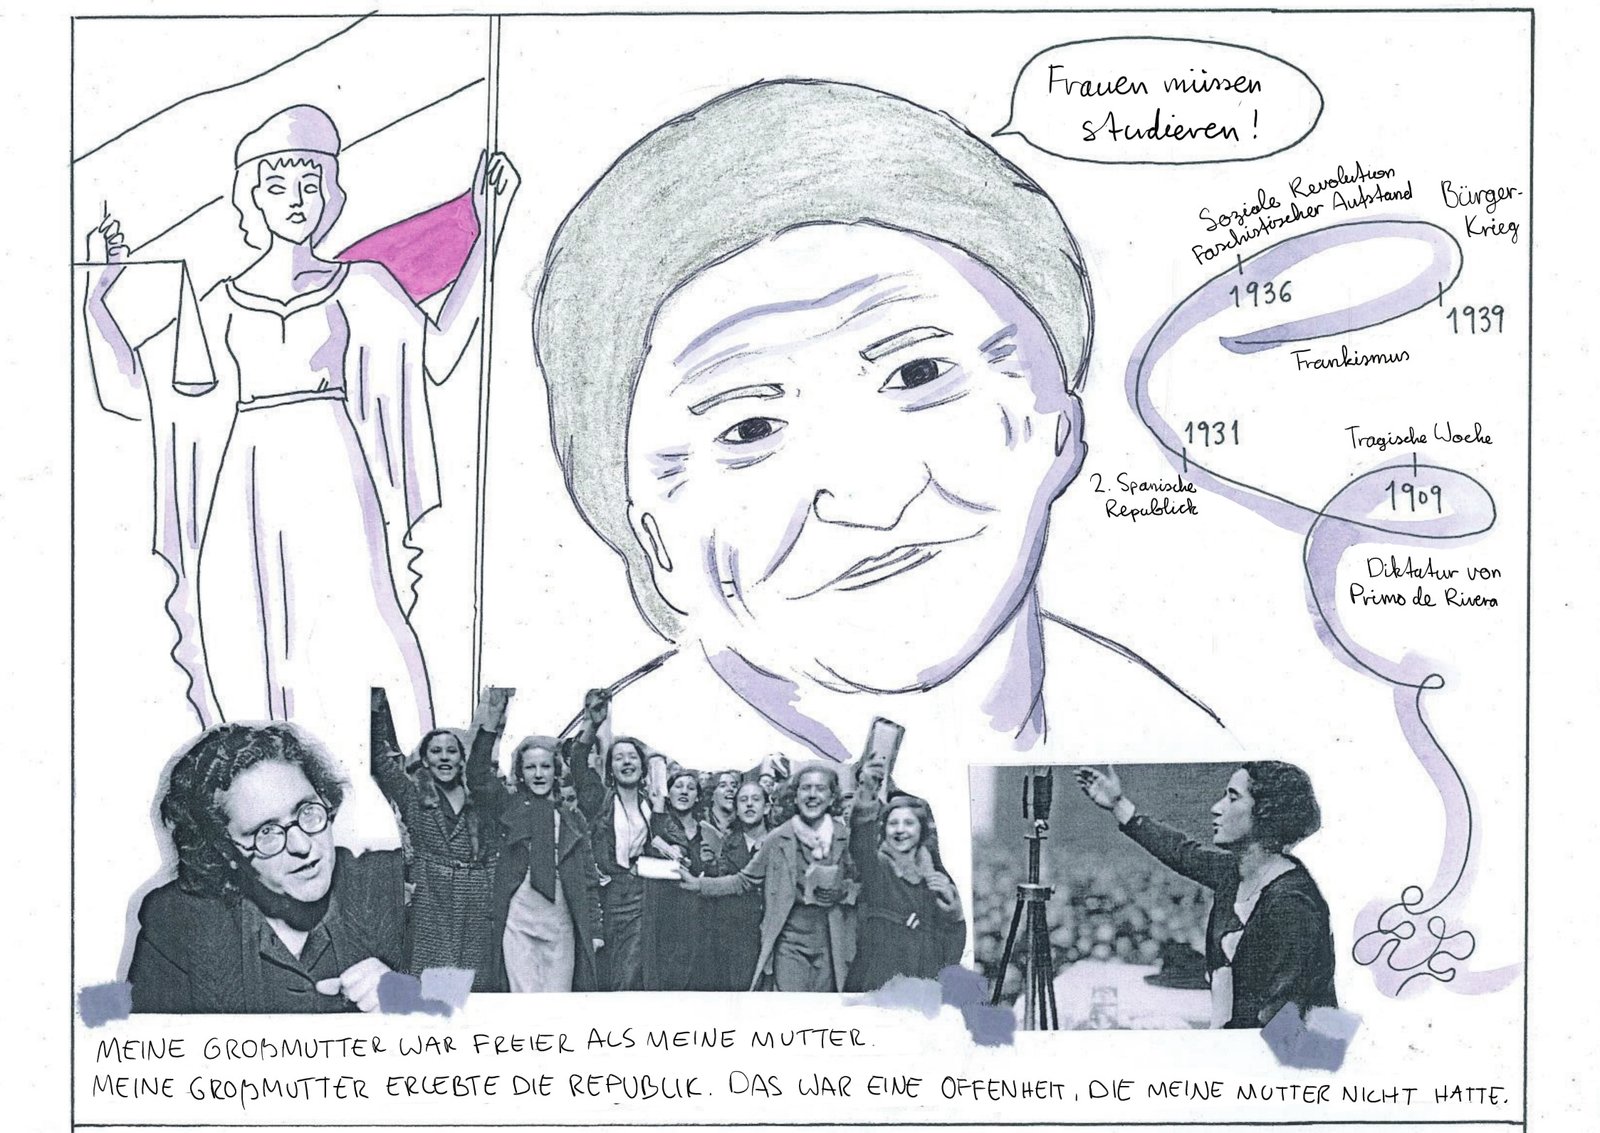 Frauen müssen
studieren!
Soziale Revolution
Faschistischer Aufstand
Bürger-
Krieg
1936
1939
Frankismus
1931
2. Spanische
Republick
Tragische Woche
1909
Diktatur von
Primo de Rivera
MEINE GROßMUTTER WAR FREIER ALS MEINE MUTTER.
MEINE GROßMUTTER ERLEBTE DIE REPUBLIK. DAS WAR EINE OFFENHEIT, DIE MEINE MUTTER NICHT HATTE.